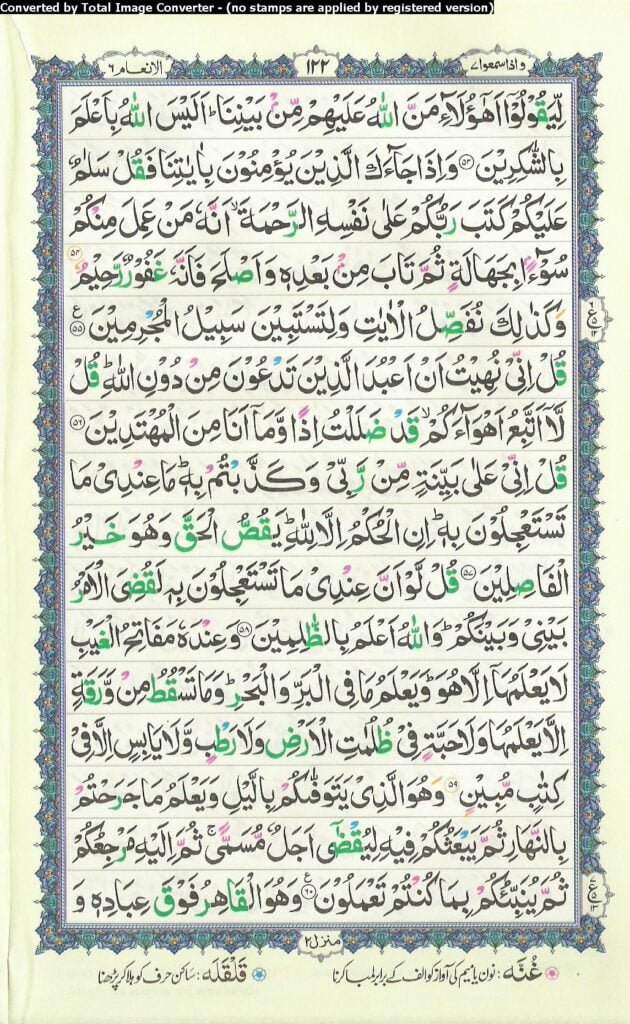 Converted by Total Image Converter - (no stamps are applied by registered version)
واذاسمعوا۷
۱۲۲
الانعام ٦
لِّيَقُوْلُوْۤا اَهٰۤؤُلَآءِ مَنَّ اللّٰهُ عَلَيْهِمْ مِّنْۢ بَيْنِنَا ؕ اَلَيْسَ اللّٰهُ بِاَعْلَمَ
بِالشّٰكِرِيْنَ ۝۵۳ وَاِذَا جَآءَكَ الَّذِيْنَ يُؤْمِنُوْنَ بِاٰيٰتِنَا فَقُلْ سَلٰمٌ
عَلَيْكُمْ كَتَبَ رَبُّكُمْ عَلٰى نَفْسِهِ الرَّحْمَةَ ۙ اَنَّهٗ مَنْ عَمِلَ مِنْكُمْ
سُوْٓءًۢا بِجَهَالَةٍ ثُمَّ تَابَ مِنْۢ بَعْدِهٖ وَاَصْلَحَ فَاَنَّهٗ غَفُوْرٌ رَّحِيْمٌ ۝۵۴
وَكَذٰلِكَ نُفَصِّلُ الْاٰيٰتِ وَلِتَسْتَبِيْنَ سَبِيْلُ الْمُجْرِمِيْنَ ۝۵۵ ع
قُلْ اِنِّيْ نُهِيْتُ اَنْ اَعْبُدَ الَّذِيْنَ تَدْعُوْنَ مِنْ دُوْنِ اللّٰهِ ؕ قُلْ
لَّاۤ اَتَّبِعُ اَهْوَآءَكُمْ ۙ قَدْ ضَلَلْتُ اِذًا وَّمَاۤ اَنَا مِنَ الْمُهْتَدِيْنَ ۝۵۶
قُلْ اِنِّيْ عَلٰى بَيِّنَةٍ مِّنْ رَّبِّيْ وَكَذَّبْتُمْ بِهٖ ؕ مَا عِنْدِيْ مَا
تَسْتَعْجِلُوْنَ بِهٖ ؕ اِنِ الْحُكْمُ اِلَّا لِلّٰهِ ؕ يَقُصُّ الْحَقَّ وَهُوَ خَيْرُ
الْفَاصِلِيْنَ ۝۵۷ قُلْ لَّوْ اَنَّ عِنْدِيْ مَا تَسْتَعْجِلُوْنَ بِهٖ لَقُضِيَ الْاَمْرُ
بَيْنِيْ وَبَيْنَكُمْ ؕ وَاللّٰهُ اَعْلَمُ بِالظّٰلِمِيْنَ ۝۵۸ وَعِنْدَهٗ مَفَاتِحُ الْغَيْبِ
لَا يَعْلَمُهَاۤ اِلَّا هُوَ ؕ وَيَعْلَمُ مَا فِي الْبَرِّ وَالْبَحْرِ ؕ وَمَا تَسْقُطُ مِنْ وَّرَقَةٍ
اِلَّا يَعْلَمُهَا وَلَا حَبَّةٍ فِيْ ظُلُمٰتِ الْاَرْضِ وَلَا رَطْبٍ وَّلَا يَابِسٍ اِلَّا فِيْ
كِتٰبٍ مُّبِيْنٍ ۝۵۹ وَهُوَ الَّذِيْ يَتَوَفّٰىكُمْ بِالَّيْلِ وَيَعْلَمُ مَا جَرَحْتُمْ
بِالنَّهَارِ ثُمَّ يَبْعَثُكُمْ فِيْهِ لِيُقْضٰۤى اَجَلٌ مُّسَمًّى ۚ ثُمَّ اِلَيْهِ مَرْجِعُكُمْ
ثُمَّ يُنَبِّئُكُمْ بِمَا كُنْتُمْ تَعْمَلُوْنَ ۝۶۰ ع وَهُوَ الْقَاهِرُ فَوْقَ عِبَادِهٖ وَ
منزل۲
غُنَّه : نون یا میم کی آواز کو الف کے برابر لمبا کرنا
قَلْقَلَه : ساکن حرف کو ہلا کر پڑھنا